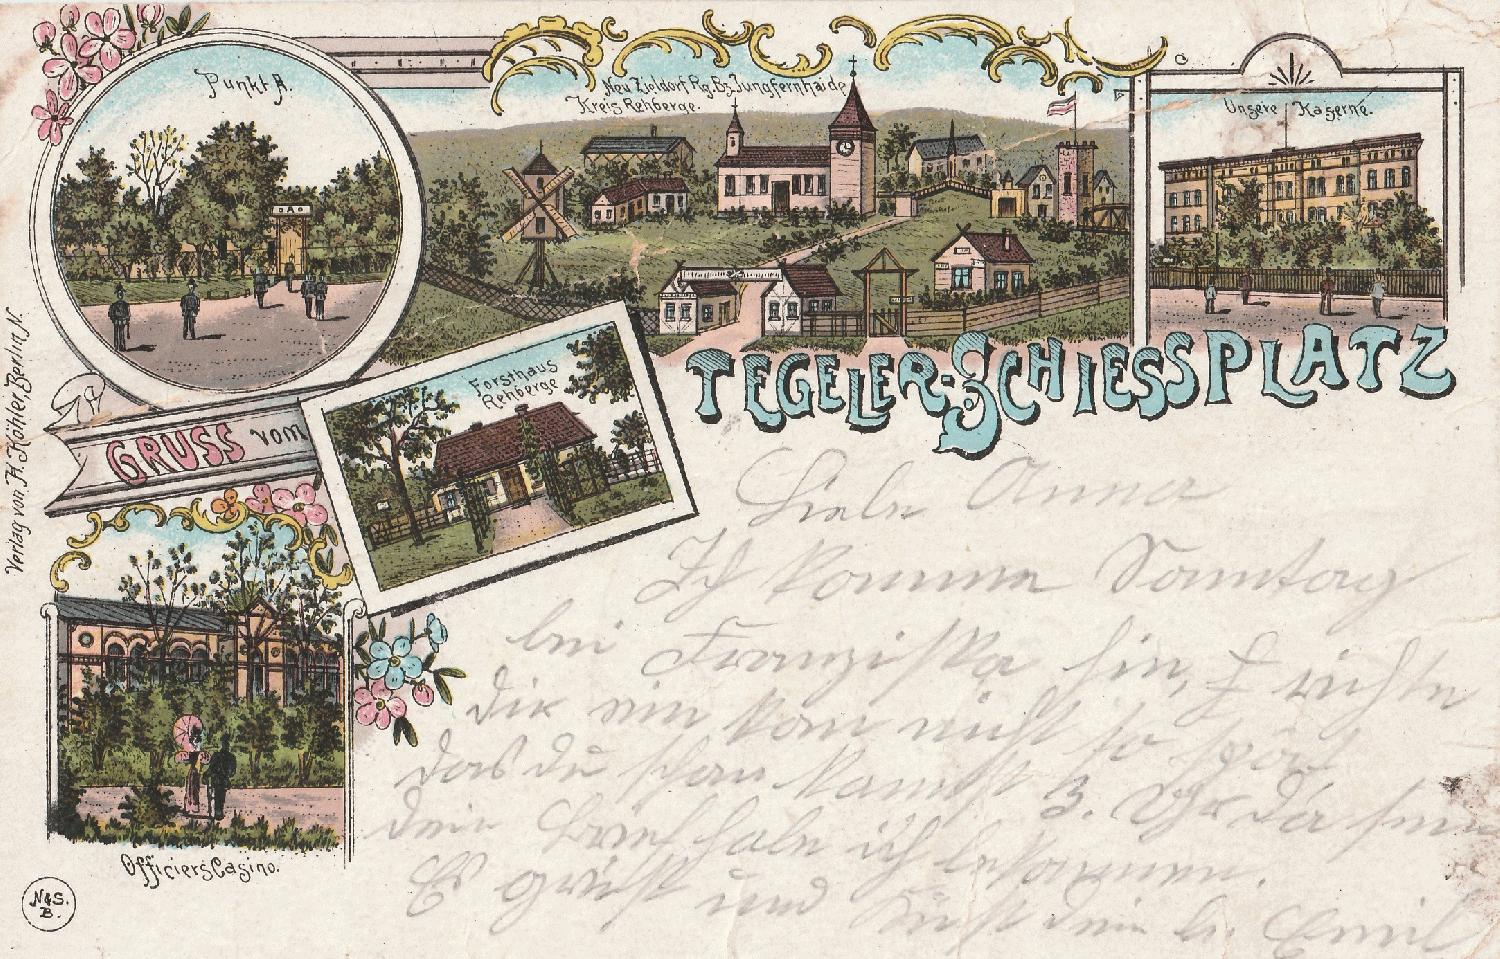 Punkt A.
Neu Zieldorf Rg. Bz. Jungfernhaide
Kreis Rehberge.
Unsere Kaserne.
Forsthaus
Rehberge
GRUSS vom
TEGELER-SCHIESSPLATZ
Officiers Casino.
Verlag von H. Köhler, Berlin N.
N & S.
B.
Liebe Anna
Ich komme Sonntag
bei Franziska hin, richte
dir ein kom nicht so spät
das du schon kannst 3. Uhr da sein
dein Brief habe ich erhalten.
Es grüßt und küßt dein Emil